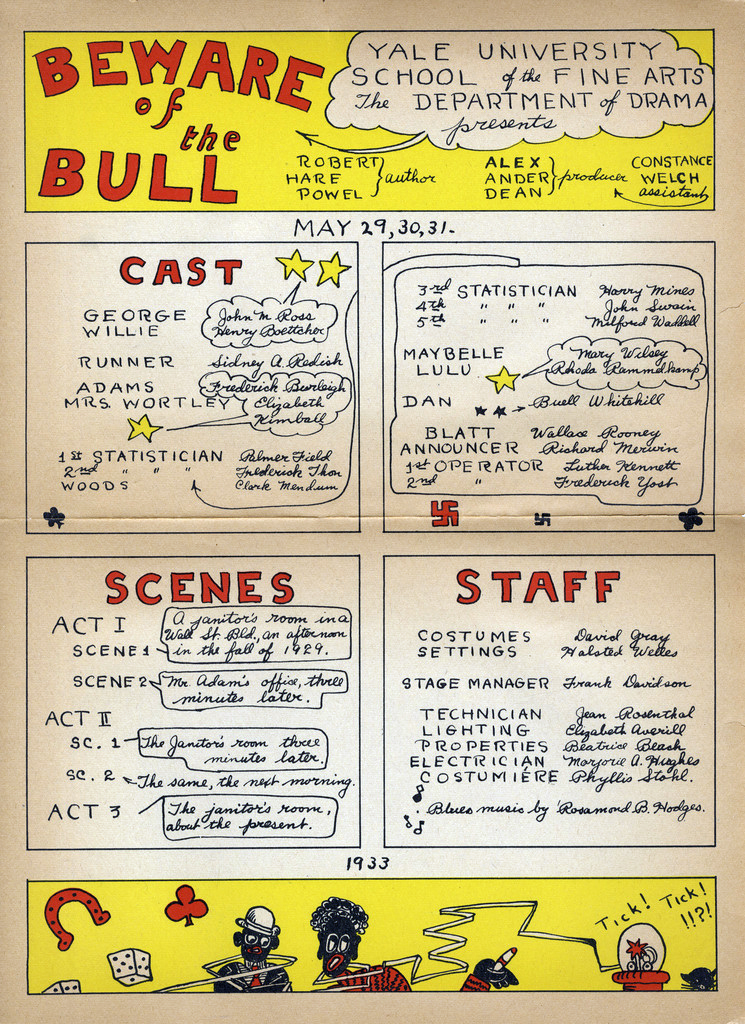 BEWARE
of
the
BULL
YALE UNIVERSITY
SCHOOL of the FINE ARTS
The DEPARTMENT of DRAMA
presents
ROBERT
HARE
POWEL
author
ALEX
ANDER
DEAN
producer
CONSTANCE
WELCH
assistant
MAY 29, 30, 31.
CAST
GEORGE John M. Ross
WILLIE Henry Boettcher
RUNNER Sidney A. Redish
ADAMS Frederick Burleigh
MRS. WORTLEY Elizabeth
Kimball
1st STATISTICIAN Palmer Field
2nd " " " Frederick Thon
WOODS Clark Mendum
3rd STATISTICIAN Harry Mines
4th " " " John Swain
5th " " " Milford Waddell
MAYBELLE Mary Wilsey
LULU Rhoda Rammelkamp
DAN Buell Whitehill
BLATT Wallace Rooney
ANNOUNCER Richard Merwin
1st OPERATOR Luther Kennett
2nd " Frederick Yost
SCENES
ACT I
SCENE 1
A janitor's room in a
Wall St. Bld., an afternoon
in the fall of 1929.
SCENE 2
Mr. Adam's office, three
minutes later.
ACT II
SC. 1
The Janitor's room three
minutes later.
SC. 2 The same, the next morning.
ACT 3
The janitor's room,
about the present.
STAFF
COSTUMES David Gray
SETTINGS Halsted Welles
STAGE MANAGER Frank Davidson
TECHNICIAN Jean Rosenthal
LIGHTING Elizabeth Averill
PROPERTIES Beatrice Beach
ELECTRICIAN Marjorie A. Hughes
COSTUMIÈRE Phyllis Stohl.
Blues music by Rosamond B. Hodges.
1933
Tick! Tick!
!!?!